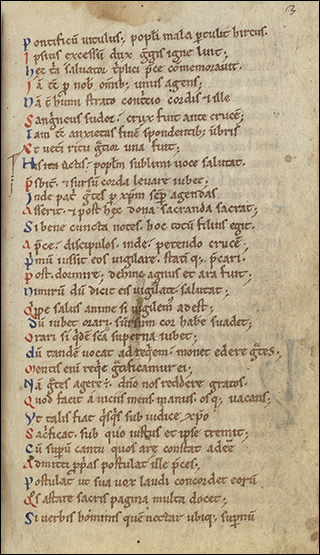 3
Pontificū uitulus, popli mala ptulit hircus.
Ipsius excessum dux ggis igne luit;
Hec tā saluator tplici pce cōmemorauit.
Iā t p nob omīb; unus agens;
Nā ē hum strato cordis & ille
Sanguineus sudor, crux fuit ante crucē;
Iam tc anxietas finē spondentib; umbris
Et ueti ritu gtior una fuit;
populm sublimi uoce salutat.
& sursū corda leuare iubet;
Inde pat gtes p xpm semp agendas
Asserit, & post hec dona sacranda sacrat;
Si bene cuncta notes, hoc totū filius egit.
Apce, discipulos, inde, petendo crucē,
Pmū iussit eos uigilare, stati q; pcari.
Post, dormire, dehinc agnus et ara fuit;
Nimirū dū dicit eis uigilate salutat;
Qppe salus anime si uigilem adest;
Dū iubet orari, sursum cor habe suadet;
Orari si qdē scā superna iubet;
Dū tandē uocat ad reqem, monet edere gtes.
Mentis eni reqe gtificamur ei,
Nā gtes agere ē, dno nos reddere gratos.
Quod facit a uiciis mens, manus, os q; uacans;
Vt talis fiat qsqs sub iudice xpo
Sacficat, sub quo iustus et ipse tremit;
Cū supm cantu quos are constat adeē
Admitti ppas postulat ille pces,
Postulat ut sua uox laudi concordet eorū
Qs astare sacris pagina multa docet;
Si uerbis hominis que nectar ubiq; supernū